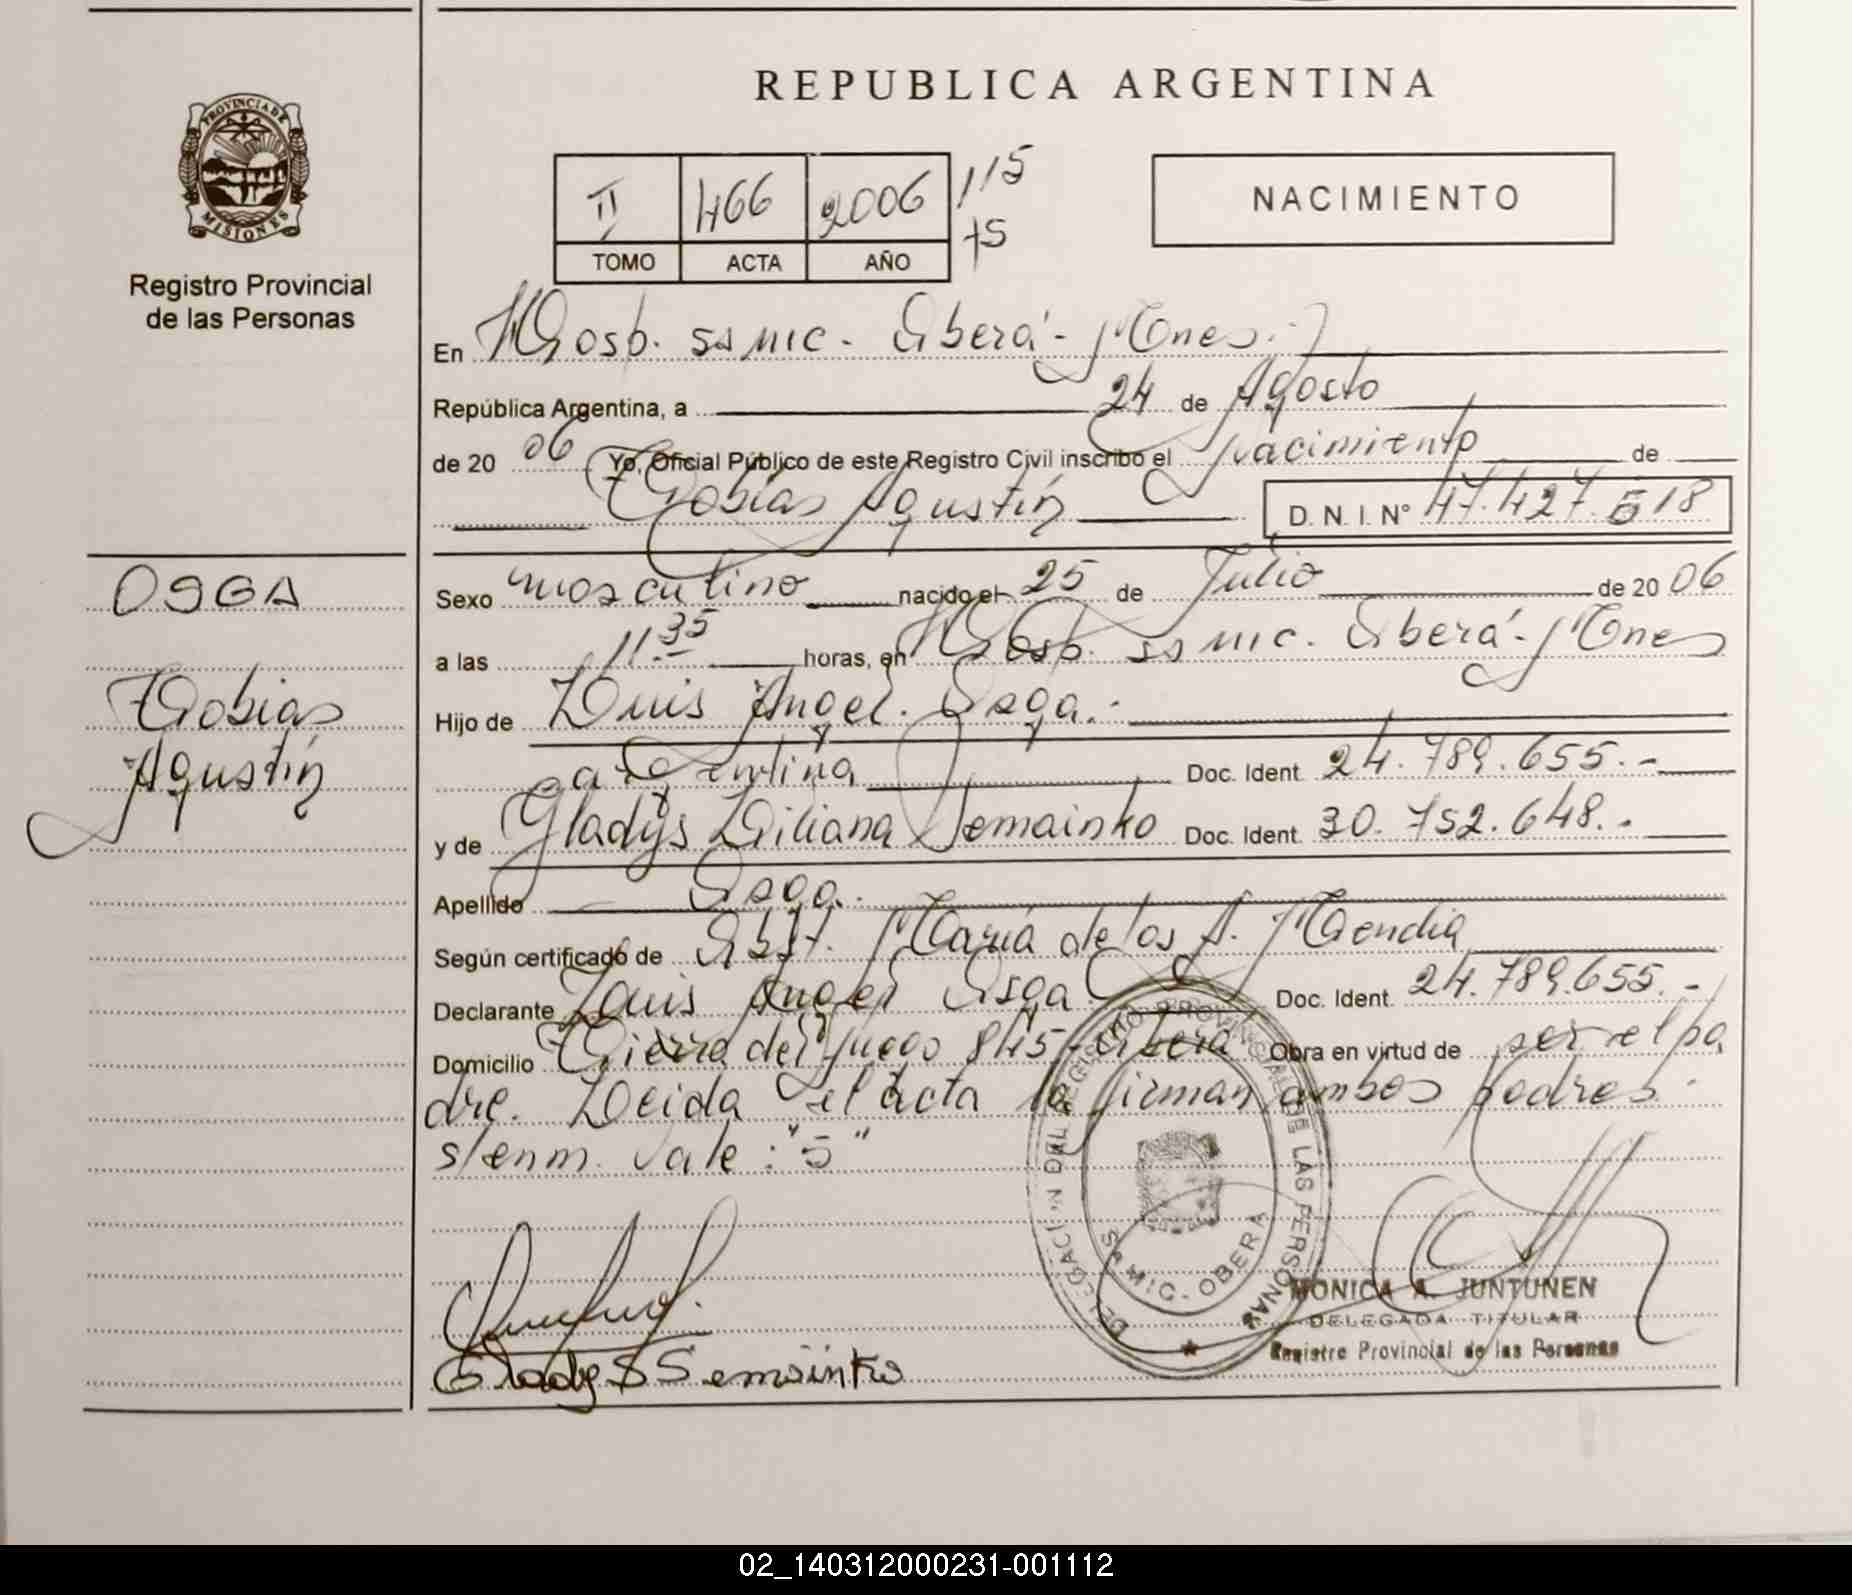 REPUBLICA ARGENTINA
PROVINCIA DE
MISIONES
Registro Provincial
de las Personas
II 466 2006 115
TOMO ACTA AÑO
NACIMIENTO
En Hosp. ss mic. Oberá - Mnes.
República Argentina, a 24 de Agosto
de 20 06 Yo, Oficial Público de este Registro Civil inscribo el nacimiento de
Tobías Agustín D. N. I. N° 47.427.518
OSGA
Tobias
Agustín
Sexo masculino nacido el 25 de Julio de 20 06
a las 11.35 horas, en Hosp. ss mic. Oberá - Mnes
Hijo de Luis Angel Osga.-
argentina Doc. Ident. 24.789.655.-
y de Gladys Liliana Semainko Doc. Ident. 30.752.648.-
Apellido Osga.
Según certificado de Obst. María de los A. Mendia
Declarante Luis Angel Osga Doc. Ident. 24.789.655.-
Domicilio Tierra del fuego 845 - Oberá Obra en virtud de ser el pa
dre. Leida el acta la firman ambos padres.
s/enm. Vale: "5"
DELEGACI N DEL REGISTRO PROVINCIAL DE LAS PERSONAS
SsMIC. OBERA
MONICA A. JUNTUNEN
DELEGADA TITULAR
Registro Provincial de las Personas
Gladys Semainko
02_140312000231-001112